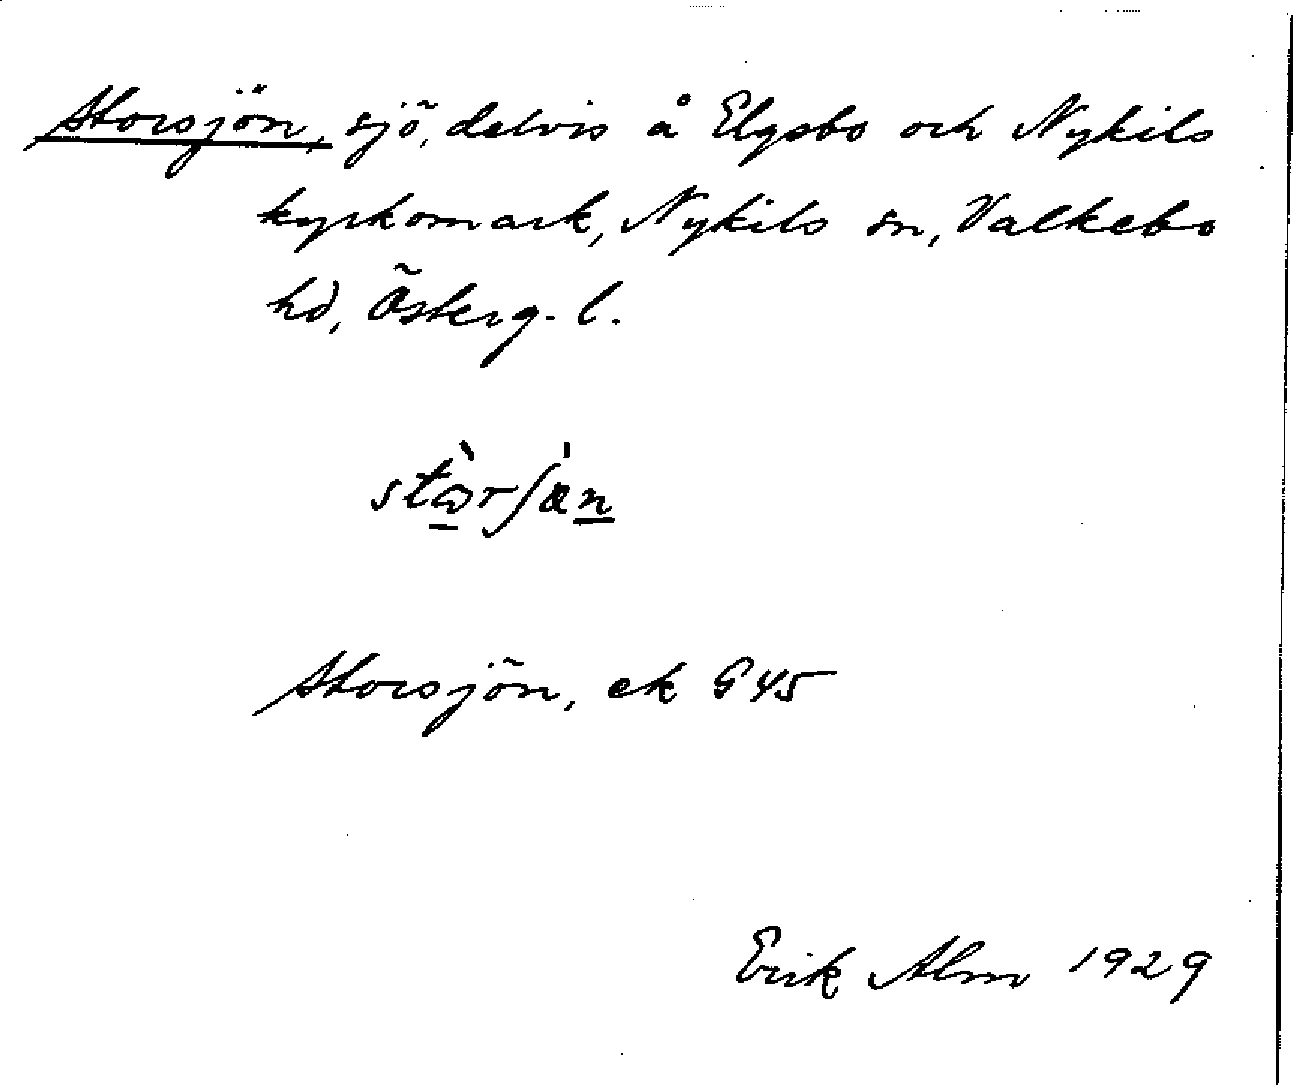 Storsjön, sjö, delvis å Elgsbo och Nykils
kyrkomark, Nykils sn, Valkebo
hd, Österg. l.
Storsjön, ek G 45
Erik Alm 1929